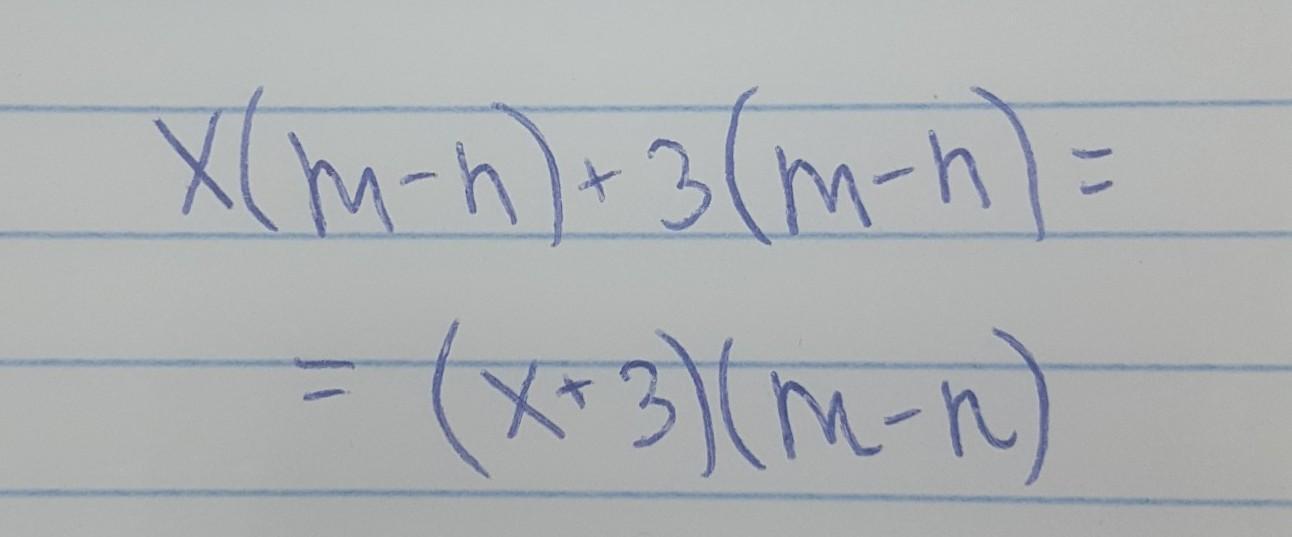 x(m-n)+3(m-n)=
=(x+3)(m-n)